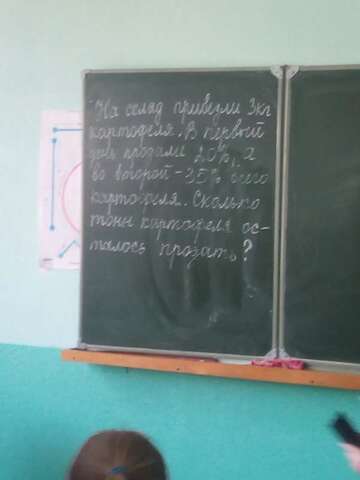 На склад привезли 3кг
картофеля. В первый
день продали 20%, а
во второй - 35% всего
картофеля. Сколько
тонн картофеля ос-
талось продать?